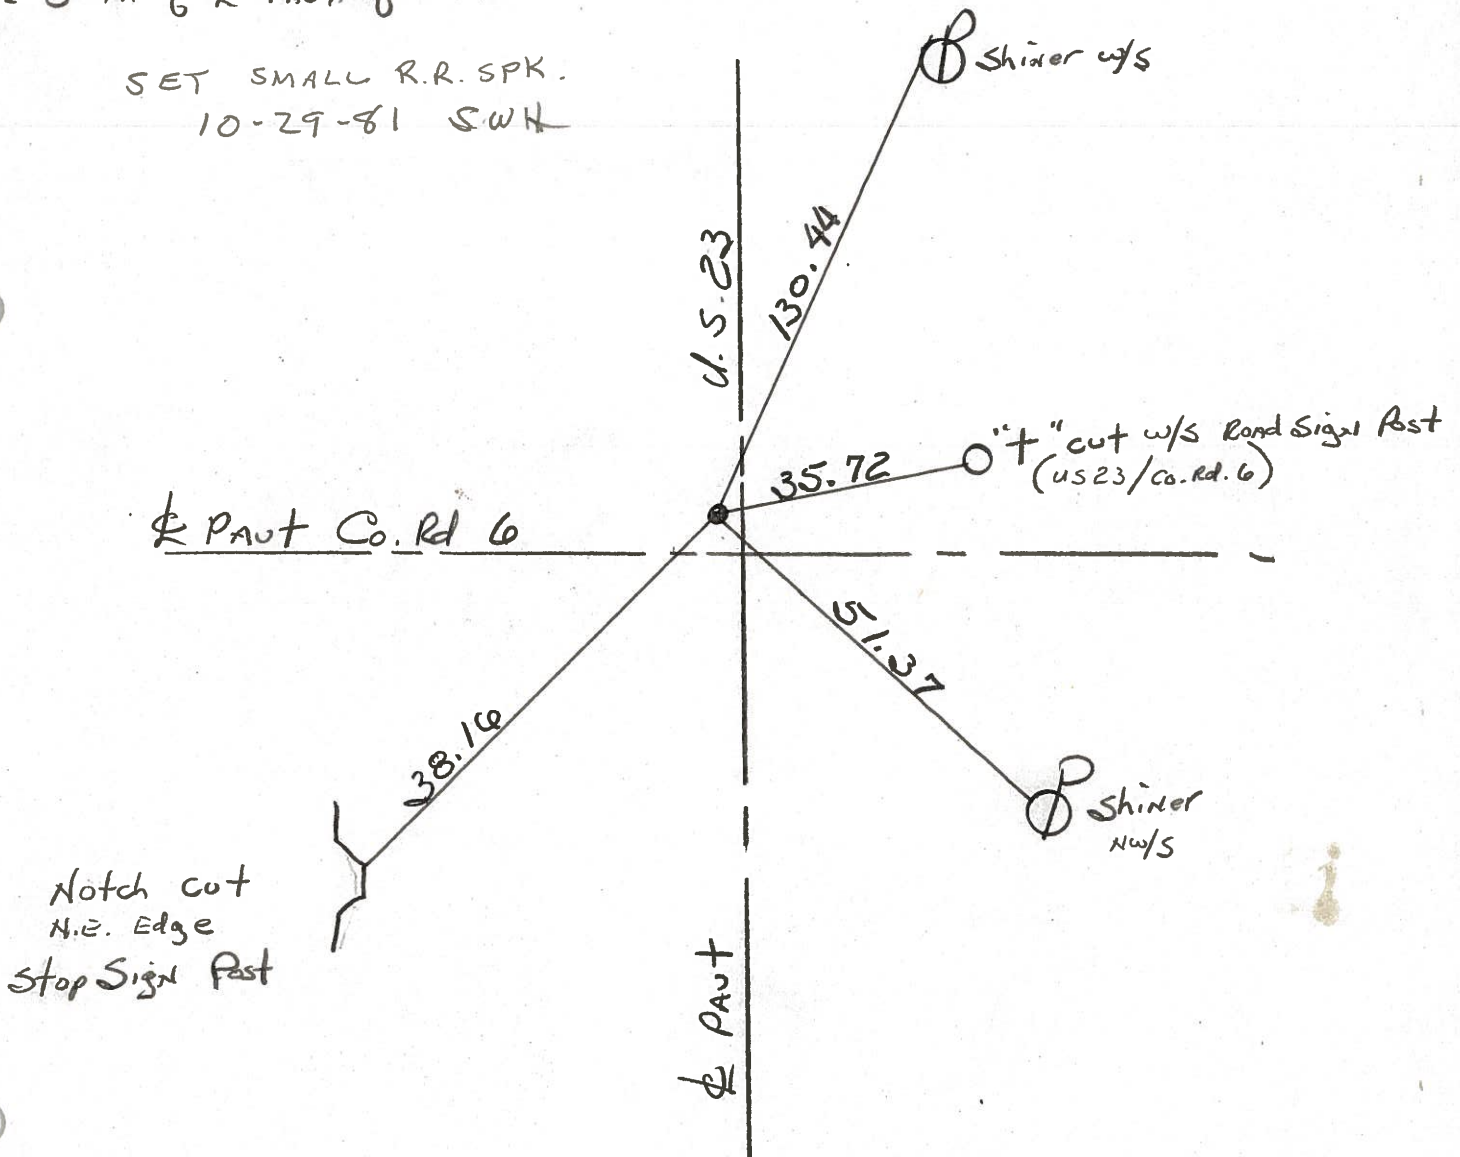 SET SMALL R.R. SPK.
10-29-81 SWH
Shiner w/s
U.S. 23
130.44
"+" cut w/s Road Sign Post
(US 23/Co. Rd. 6)
35.72
℄ PAvt Co. Rd 6
51.37
38.16
Shiner
NW/S
Notch cut
N.E. Edge
Stop Sign Post
℄ PAvt